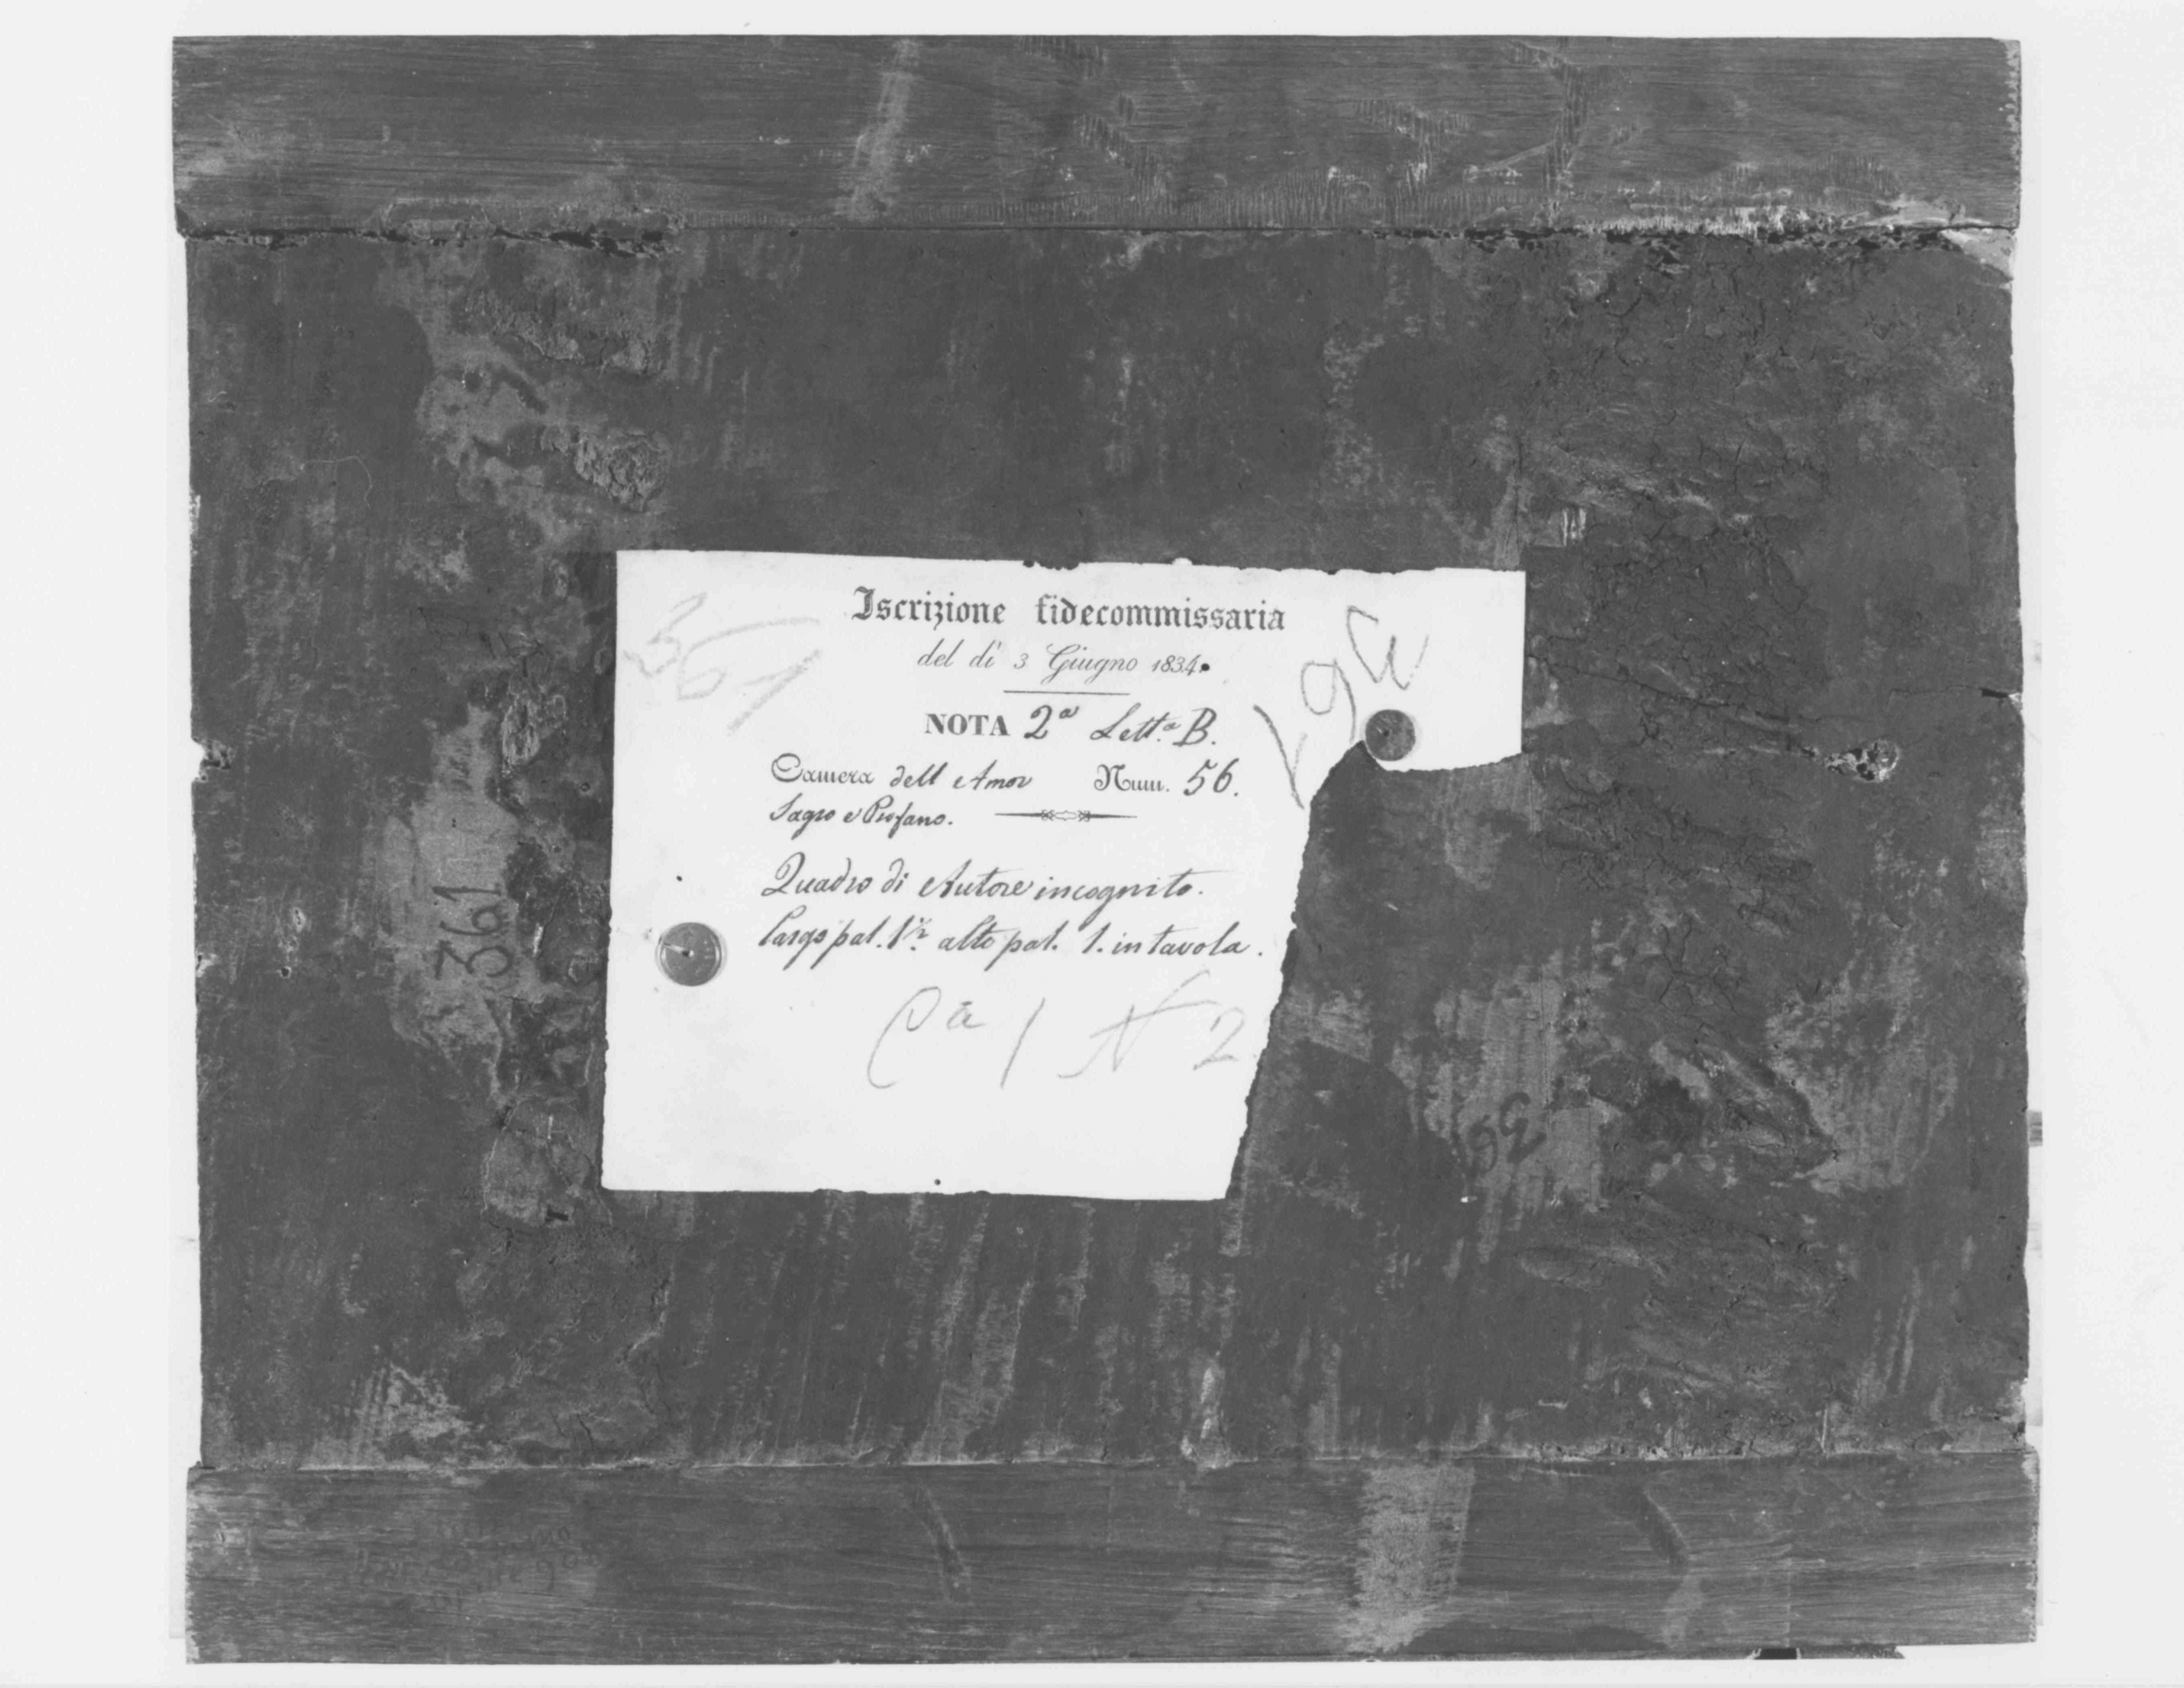 Iscrizione fidecommissaria
del dì 3 Giugno 1834.
NOTA 2ª Lett.ª B.
Camera dell Amor Num. 56.
Sagro e Profano.
Quadro di Autore incognito.
Largo pal. 1½ alto pal. 1. in tavola.
Cª 1 N 2
361
361
361
36